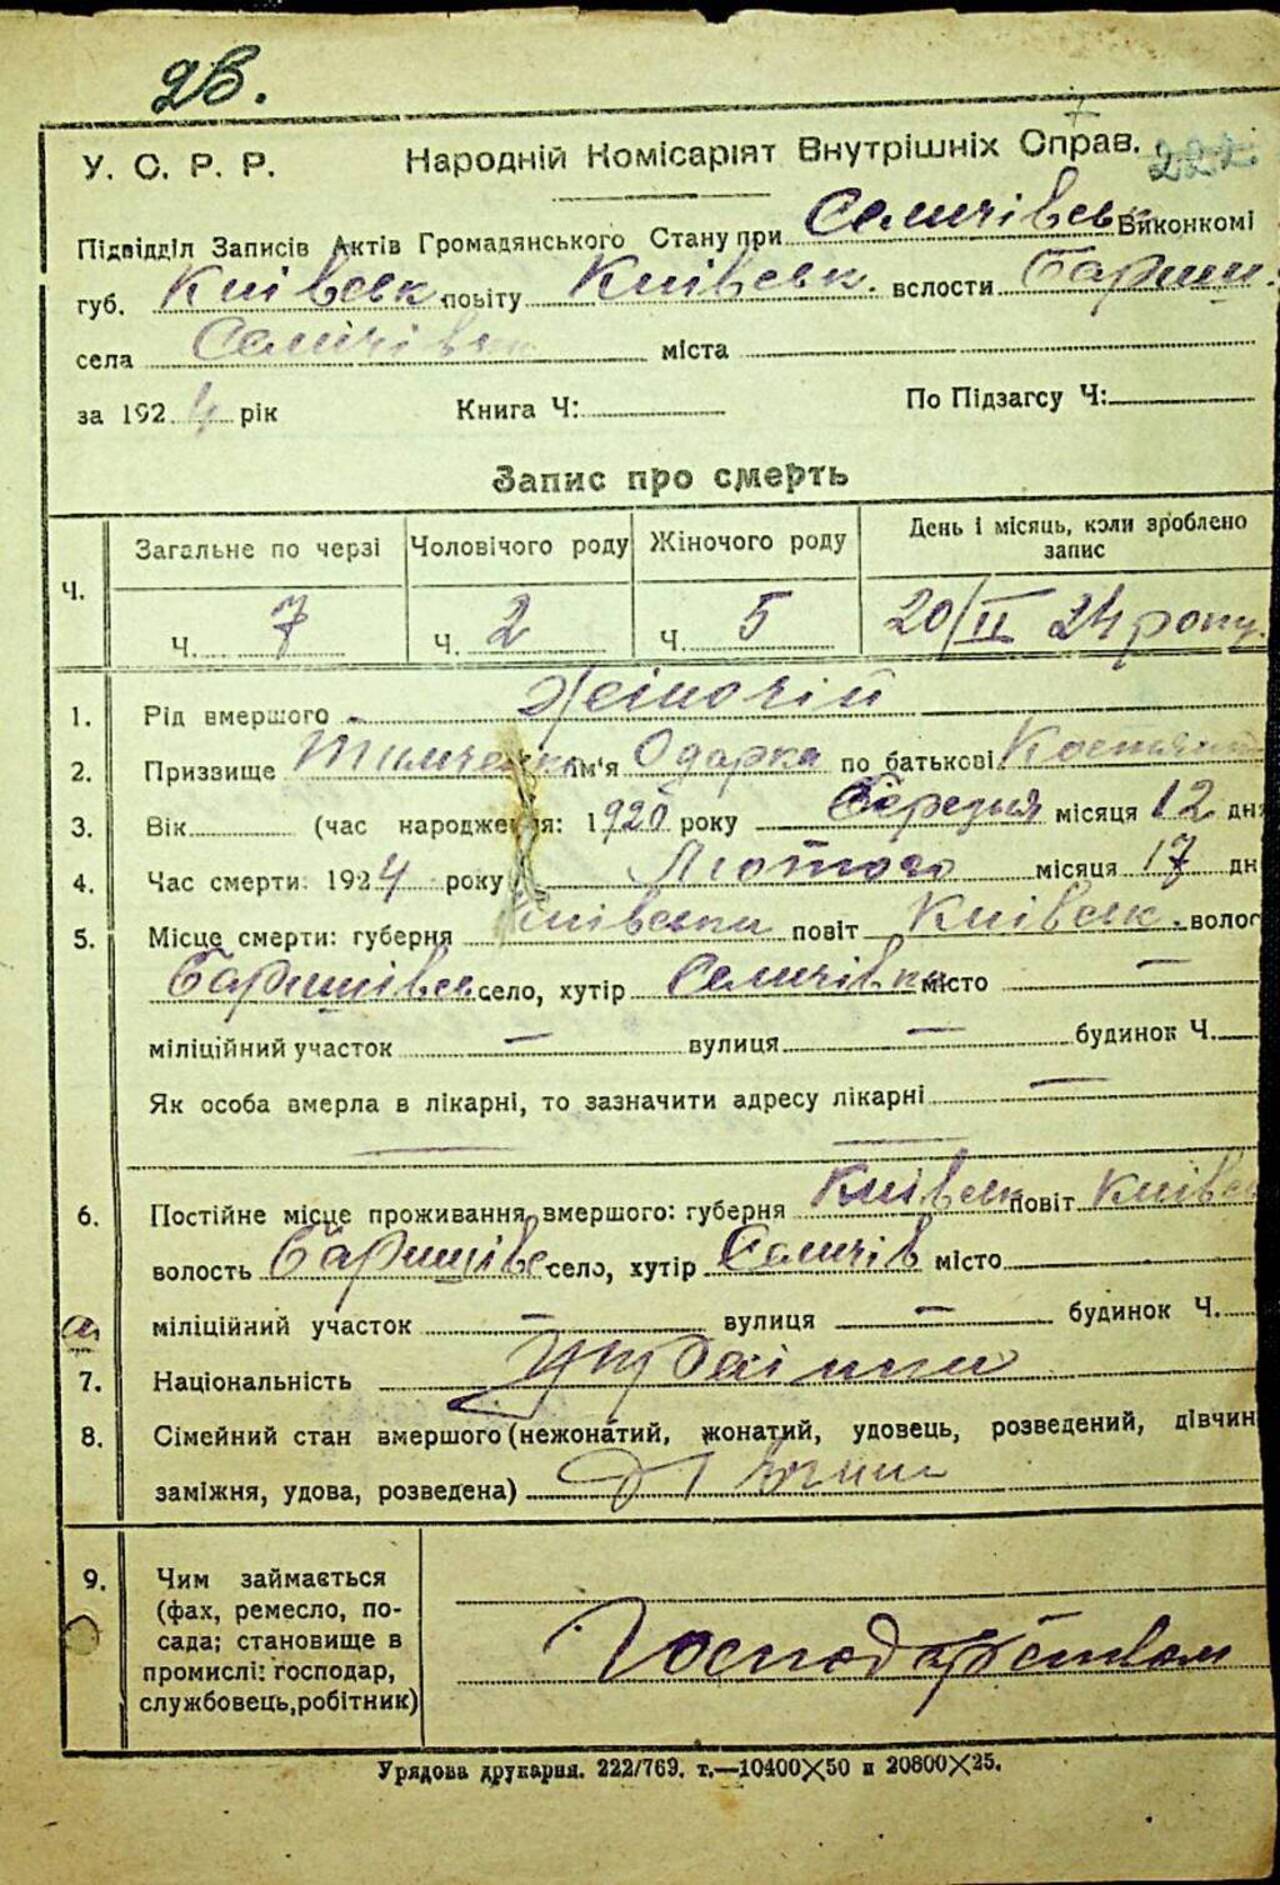 28.
У. С. Р. Р. Народній Комісаріят Внутрішніх Справ. 222
Підвідділ Записів Актів Громадянського Стану при Селичівськ Виконкомі
губ. Київськ повіту Київськ. волости Бариш.
села Селичівка міста
за 1924 рік Книга Ч: По Підзагсу Ч:
Запис про смерть
Ч. Загальне по черзі Чоловічого роду Жіночого роду День і місяць, коли зроблено запис
Ч. 7 Ч. 2 Ч. 5 20/II 24 року.
1. Рід вмершого Жіночій
2. Призвище Тимченко Ім'я Одарка по батькові
3. Вік (час народження: 1920 року місяця 12 дня
4. Час смерти: 1924 року Лютого місяця 17 дн
5. Місце смерти: губерня Київська повіт Київськ. волос
Баришівськ село, хутір Селичівка місто —
міліційний участок — вулиця — будинок Ч.
Як особа вмерла в лікарні, то зазначити адресу лікарні —
6. Постійне місце проживання вмершого: губерня Київськ повіт Київськ
волость Баришівс село, хутір Селичів місто
міліційний участок — вулиця — будинок Ч.
7. Національність
8. Сімейний стан вмершого (нежонатий, жонатий, удовець, розведений, дівчин
заміжня, удова, розведена)
9. Чим займається
(фах, ремесло, по-
сада; становище в
промислі: господар,
службовець, робітник)
Господарством
Урядова друкарня. 222/769. т.—10400×50 и 20800×25.